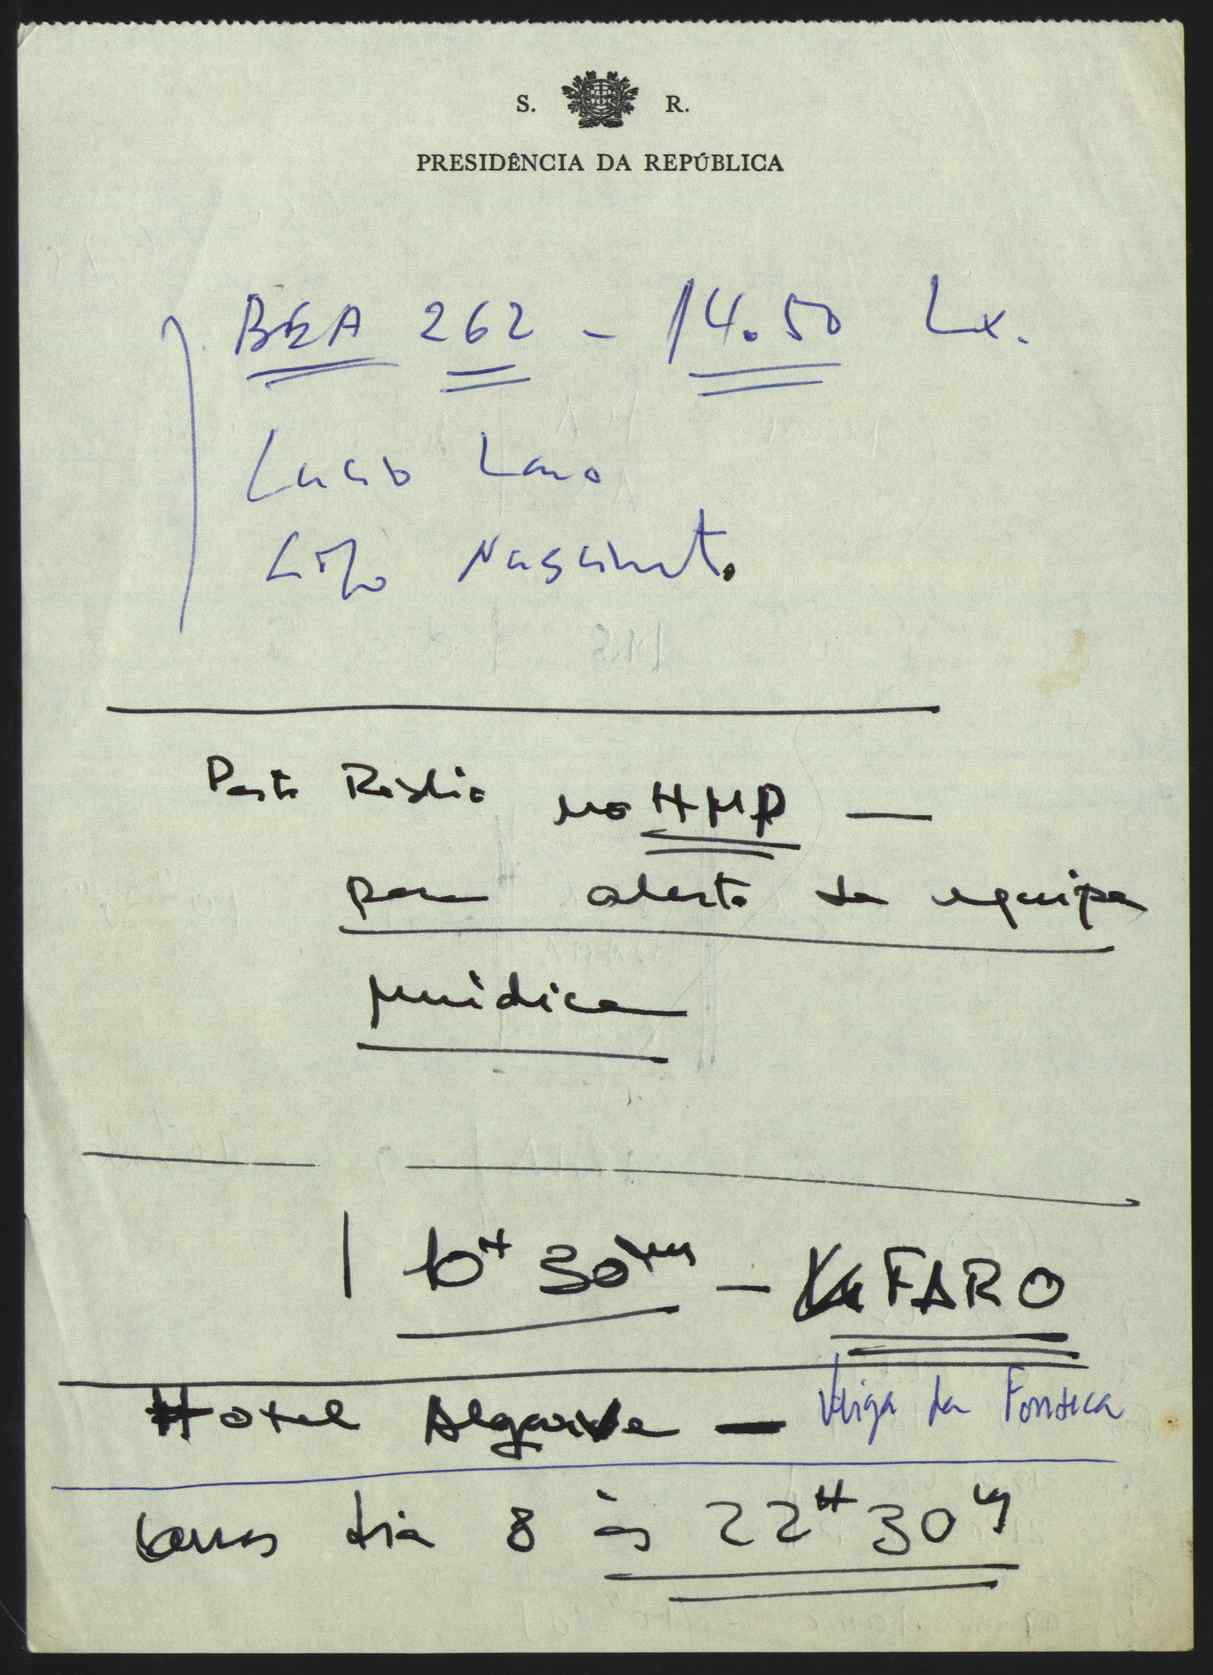 S. R.
PRESIDÊNCIA DA REPÚBLICA
BEA 262 - 14.50 Lx.
Lucio Lara
Lopo Nascimento
Posto Rádio no HMP —
para alerta da equipa
jurídica
10H 30m — FARO
Hotel Algarve — Veiga da Fonseca
dia 8 às 22H 30m